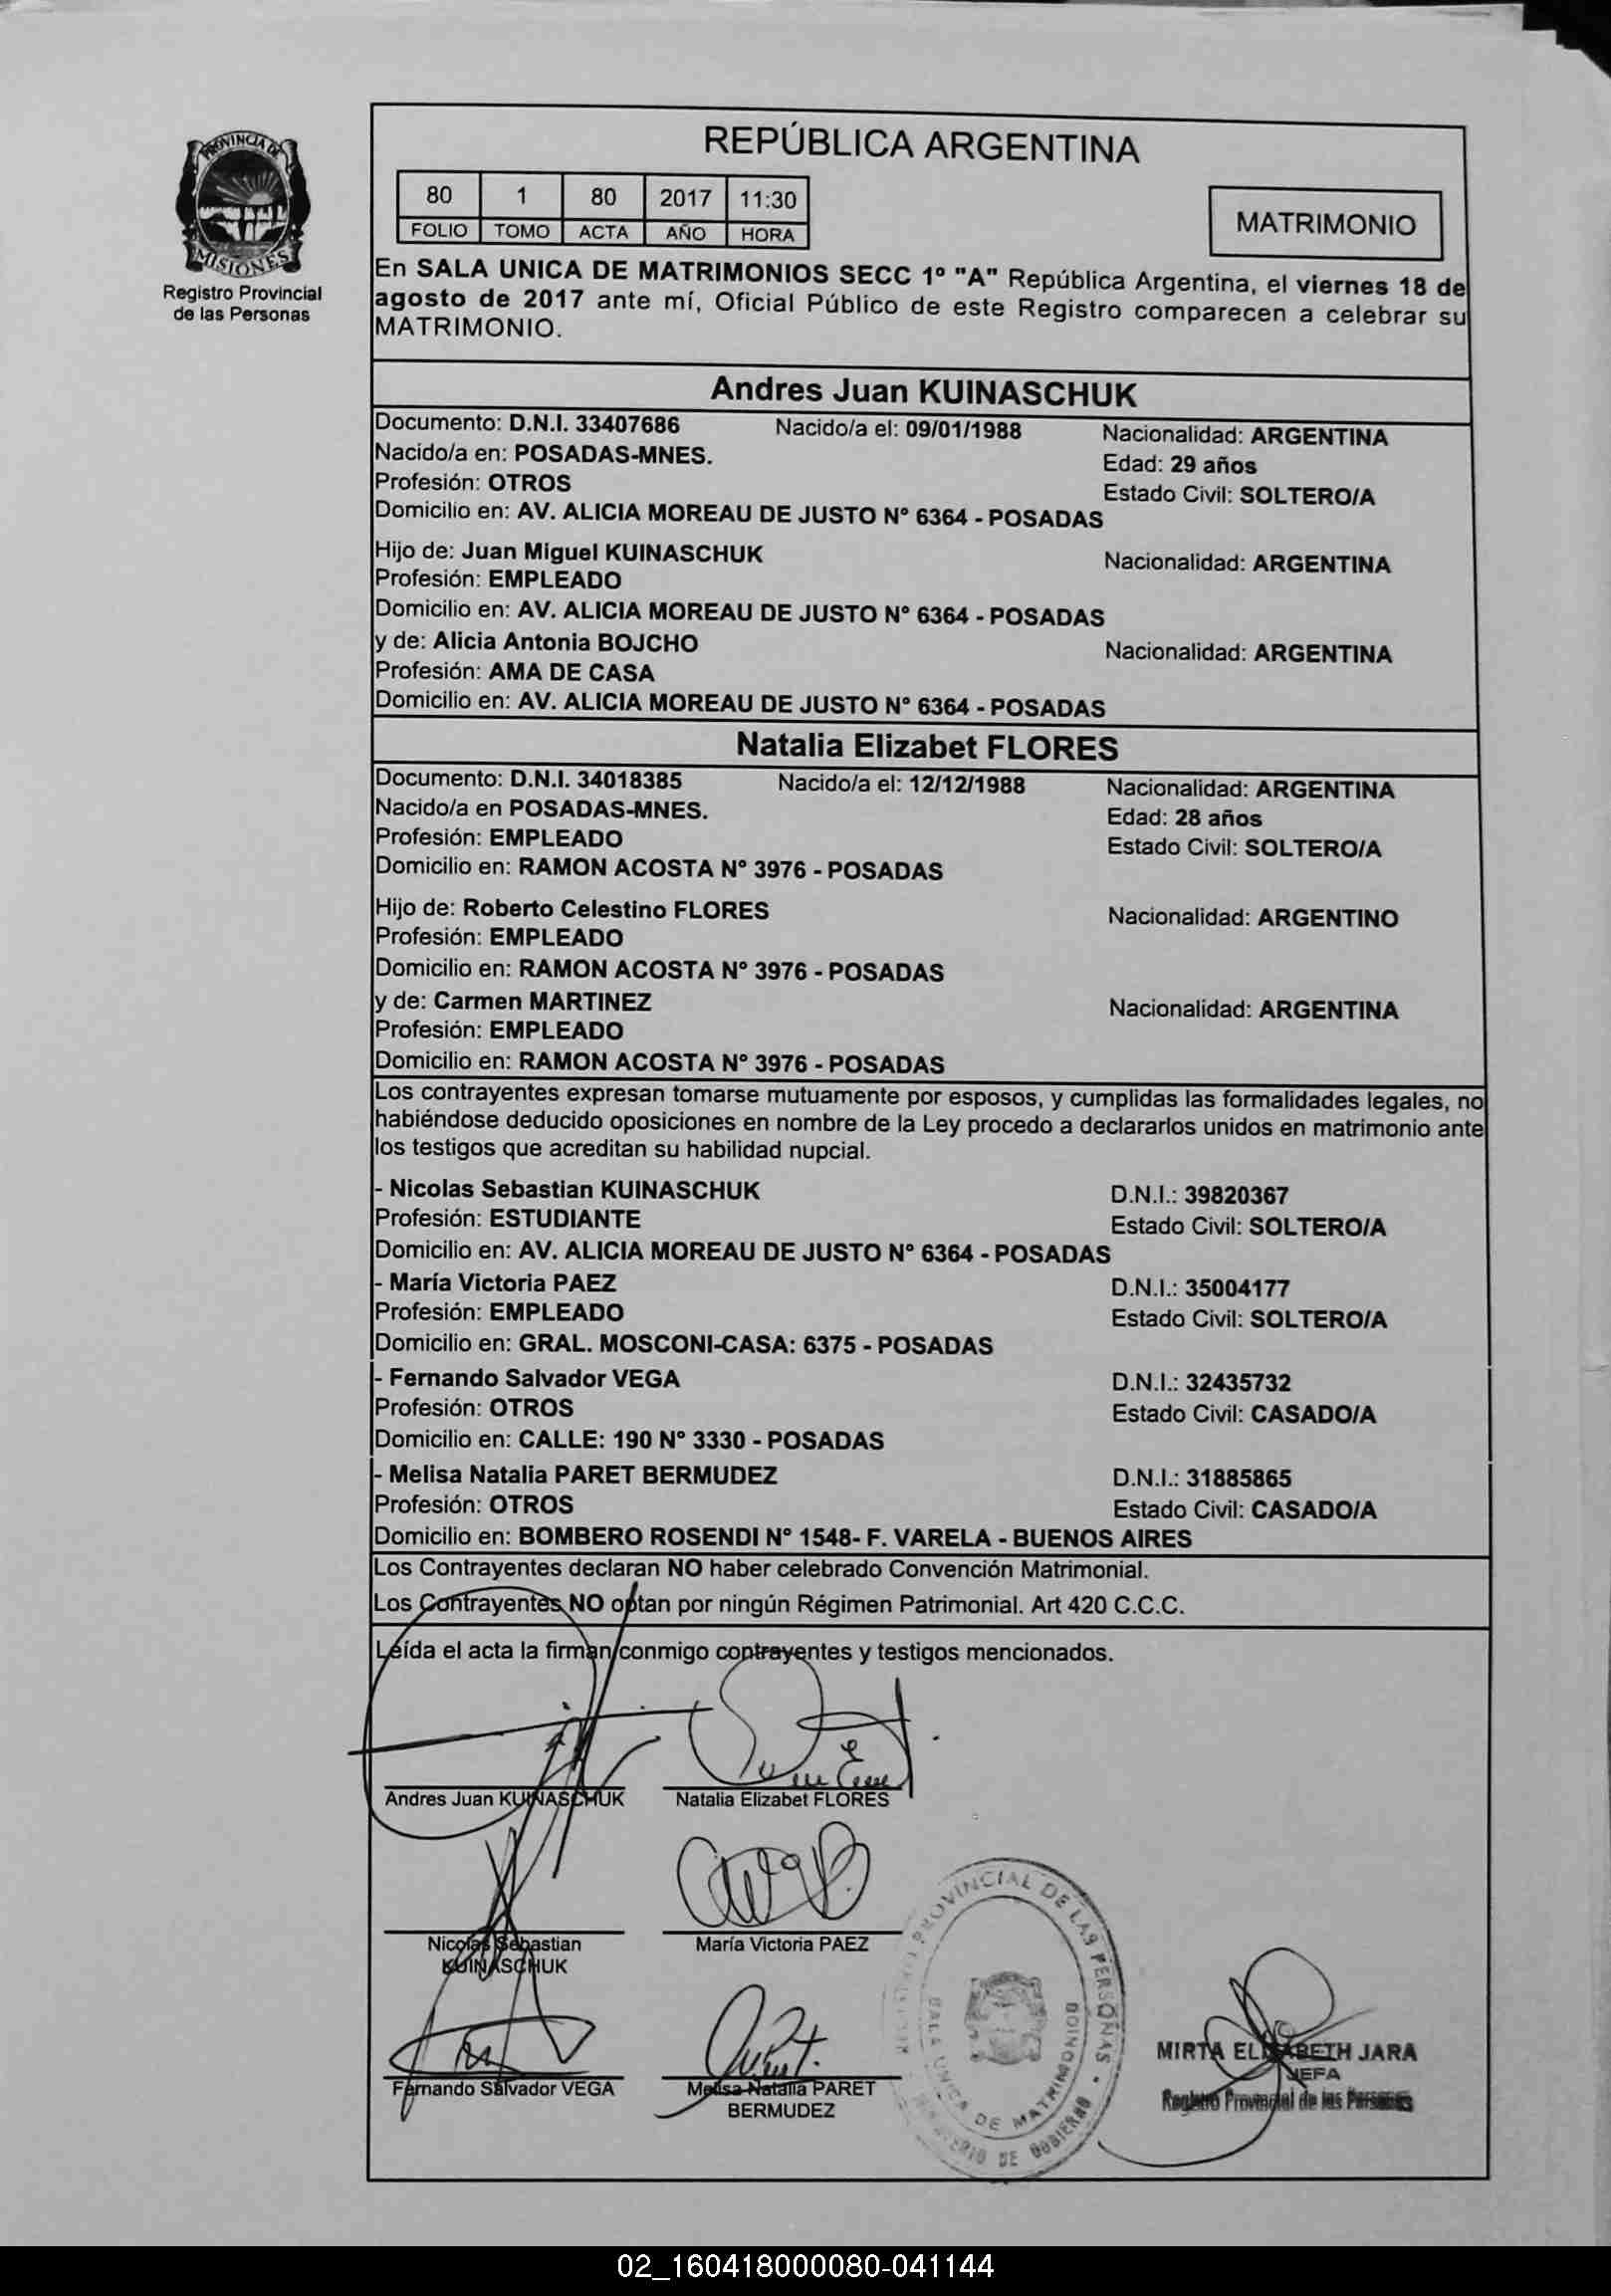 PROVINCIA DE
MISIONES
Registro Provincial
de las Personas
REPÚBLICA ARGENTINA
80 1 80 2017 11:30
FOLIO TOMO ACTA AÑO HORA
MATRIMONIO
En SALA UNICA DE MATRIMONIOS SECC 1º "A" República Argentina, el viernes 18 de
agosto de 2017 ante mí, Oficial Público de este Registro comparecen a celebrar su
MATRIMONIO.
Andres Juan KUINASCHUK
Documento: D.N.I. 33407686 Nacido/a el: 09/01/1988 Nacionalidad: ARGENTINA
Nacido/a en: POSADAS-MNES. Edad: 29 años
Profesión: OTROS Estado Civil: SOLTERO/A
Domicilio en: AV. ALICIA MOREAU DE JUSTO Nº 6364 - POSADAS
Hijo de: Juan Miguel KUINASCHUK Nacionalidad: ARGENTINA
Profesión: EMPLEADO
Domicilio en: AV. ALICIA MOREAU DE JUSTO Nº 6364 - POSADAS
y de: Alicia Antonia BOJCHO Nacionalidad: ARGENTINA
Profesión: AMA DE CASA
Domicilio en: AV. ALICIA MOREAU DE JUSTO Nº 6364 - POSADAS
Natalia Elizabet FLORES
Documento: D.N.I. 34018385 Nacido/a el: 12/12/1988 Nacionalidad: ARGENTINA
Nacido/a en POSADAS-MNES. Edad: 28 años
Profesión: EMPLEADO Estado Civil: SOLTERO/A
Domicilio en: RAMON ACOSTA Nº 3976 - POSADAS
Hijo de: Roberto Celestino FLORES Nacionalidad: ARGENTINO
Profesión: EMPLEADO
Domicilio en: RAMON ACOSTA Nº 3976 - POSADAS
y de: Carmen MARTINEZ Nacionalidad: ARGENTINA
Profesión: EMPLEADO
Domicilio en: RAMON ACOSTA Nº 3976 - POSADAS
Los contrayentes expresan tomarse mutuamente por esposos, y cumplidas las formalidades legales, no
habiéndose deducido oposiciones en nombre de la Ley procedo a declararlos unidos en matrimonio ante
los testigos que acreditan su habilidad nupcial.
- Nicolas Sebastian KUINASCHUK D.N.I.: 39820367
Profesión: ESTUDIANTE Estado Civil: SOLTERO/A
Domicilio en: AV. ALICIA MOREAU DE JUSTO Nº 6364 - POSADAS
- María Victoria PAEZ D.N.I.: 35004177
Profesión: EMPLEADO Estado Civil: SOLTERO/A
Domicilio en: GRAL. MOSCONI-CASA: 6375 - POSADAS
- Fernando Salvador VEGA D.N.I.: 32435732
Profesión: OTROS Estado Civil: CASADO/A
Domicilio en: CALLE: 190 Nº 3330 - POSADAS
- Melisa Natalia PARET BERMUDEZ D.N.I.: 31885865
Profesión: OTROS Estado Civil: CASADO/A
Domicilio en: BOMBERO ROSENDI Nº 1548- F. VARELA - BUENOS AIRES
Los Contrayentes declaran NO haber celebrado Convención Matrimonial.
Los Contrayentes NO optan por ningún Régimen Patrimonial. Art 420 C.C.C.
Leída el acta la firman conmigo contrayentes y testigos mencionados.
Andres Juan KUINASCHUK Natalia Elizabet FLORES
Nicolas Sebastian María Victoria PAEZ
KUINASCHUK
Fernando Salvador VEGA Melisa Natalia PARET
BERMUDEZ
REGISTRO PROVINCIAL DE LAS PERSONAS
SALA UNICA DE MATRIMONIOS
MINISTERIO DE GOBIERNO
MIRTA ELISABETH JARA
JEFA
Registro Provincial de las Personas
02_160418000080-041144